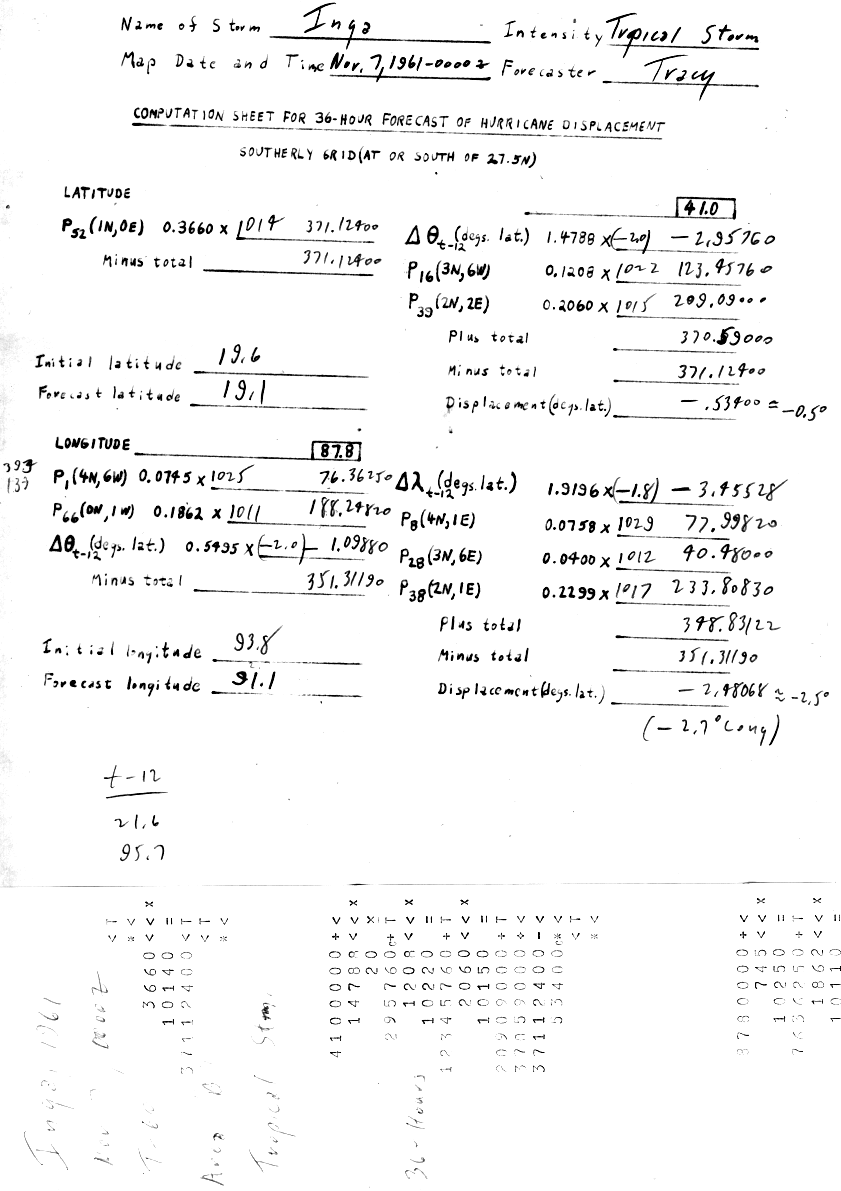 Name of Storm Inga Intensity Tropical Storm
Map Date and Time Nov. 7, 1961-0000z Forecaster Tracy
COMPUTATION SHEET FOR 36-HOUR FORECAST OF HURRICANE DISPLACEMENT
SOUTHERLY GRID (AT OR SOUTH OF 27.5N)
LATITUDE
P52(1N,0E) 0.3660 x 1014 371.12400
Minus total 371.12400
Initial latitude 19.6
Forecast latitude 19.1
41.0
Δθt-12 (degs. lat.) 1.4788 x (-2.0) - 2.95760
P16(3N,6W) 0.1208 x 1022 123.45760
P39(2N,2E) 0.2060 x 1015 209.09000
Plus total 370.59000
Minus total 371.12400
Displacement (degs. lat.) - .53400 ≈ -0.5°
LONGITUDE 87.8
P1(4N,6W) 0.0745 x 1025 76.36250
P66(0N,1W) 0.1862 x 1011 188.24820
Δθt-12 (degs. lat.) 0.5495 x (-2.0) - 1.09880
Minus total 351.31190
Initial longitude 93.8
Forecast longitude 91.1
Δλt-12 (degs. lat.) 1.9196 x (-1.8) - 3.45528
P8(4N,1E) 0.0758 x 1029 77.99820
P28(3N,6E) 0.0400 x 1012 40.48000
P38(2N,1E) 0.2299 x 1017 233.80830
Plus total 348.83122
Minus total 351.31190
Displacement (degs. lat.) - 2.48068 ≈ -2.5°
(- 2.7° Long)
t-12
21.6
95.7
Inga, 1961
0000Z
Tropical Storm
36-Hours
3660
10140
37112400
4100000
14788
20
295760
1208
10220
12345760
2060
10150
20909000
37059000
37112400
53400
8780000
745
10250
7636250
1862
10110